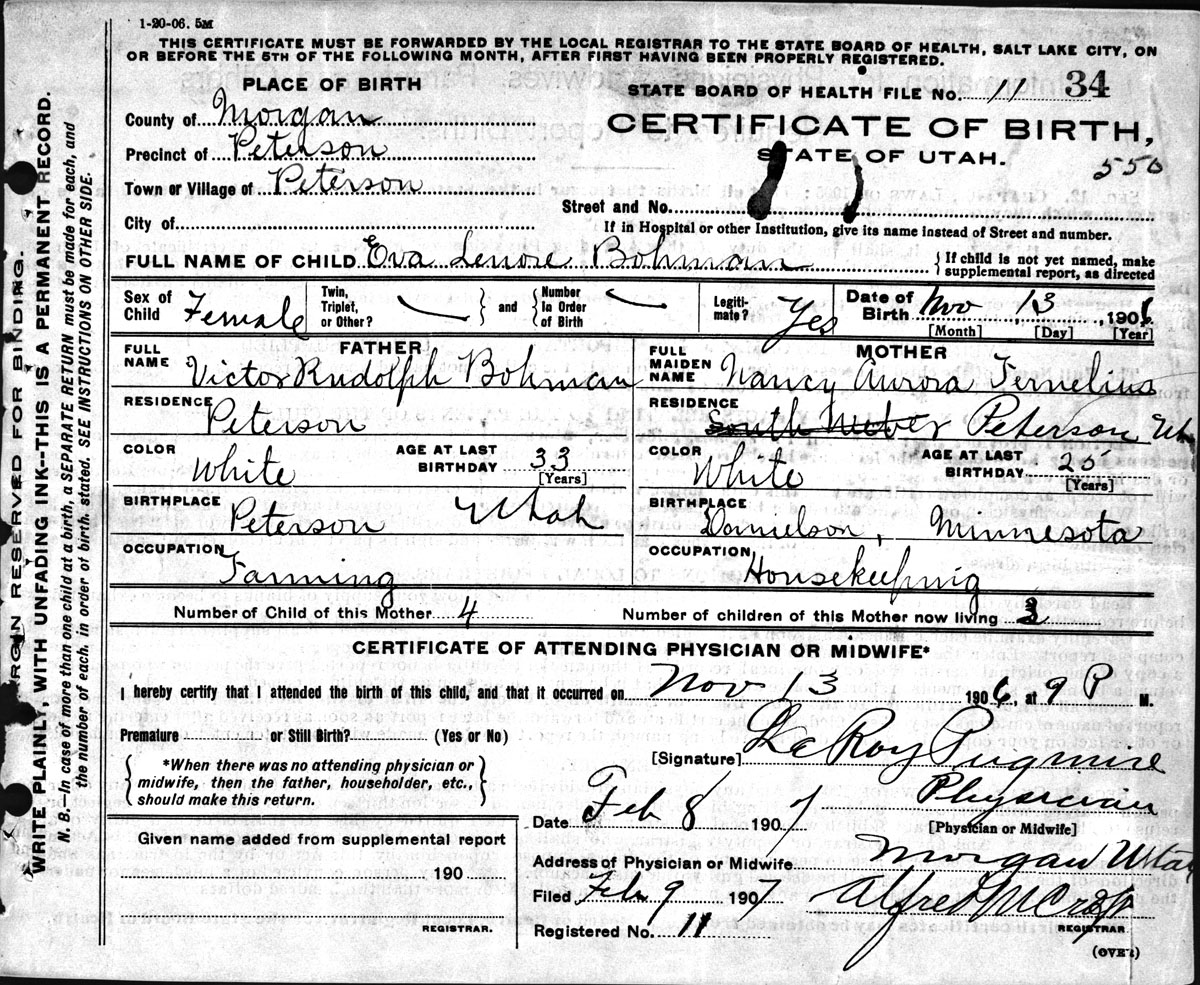 1-20-06. 5M
THIS CERTIFICATE MUST BE FORWARDED BY THE LOCAL REGISTRAR TO THE STATE BOARD OF HEALTH, SALT LAKE CITY, ON
OR BEFORE THE 5TH OF THE FOLLOWING MONTH, AFTER FIRST HAVING BEEN PROPERLY REGISTERED.
PLACE OF BIRTH
County of Morgan
Precinct of Peterson
Town or Village of Peterson
City of
STATE BOARD OF HEALTH FILE NO. 11 34
CERTIFICATE OF BIRTH,
STATE OF UTAH.
550
Street and No.
If in Hospital or other Institution, give its name instead of Street and number.
FULL NAME OF CHILD Eva Lenore Bohman
{If child is not yet named, make supplemental report, as directed
Sex of Child Female
Twin, Triplet, or Other? } and { Number In Order of Birth
Legitimate? Yes
Date of Birth Nov 13, 1906
[Month] [Day] [Year]
FATHER
FULL NAME Victor Rudolph Bohman
RESIDENCE Peterson
COLOR White
AGE AT LAST BIRTHDAY 33
[Years]
BIRTHPLACE Peterson Utah
OCCUPATION Farming
MOTHER
FULL MAIDEN NAME Nancy Aurora Ternelius
RESIDENCE South Weber Peterson Ut
COLOR White
AGE AT LAST BIRTHDAY 25
[Years]
BIRTHPLACE Danielson, Minnesota
OCCUPATION Housekeeping
Number of Child of this Mother 4
Number of children of this Mother now living 3
CERTIFICATE OF ATTENDING PHYSICIAN OR MIDWIFE*
I hereby certify that I attended the birth of this child, and that it occurred on Nov 13 1906, at 9 P M.
Premature or Still Birth? (Yes or No)
{*When there was no attending physician or
midwife, then the father, householder, etc.,
should make this return.}
[Signature] Le Roy Pugmire
Physician
[Physician or Midwife]
Date Feb 8 1907
Address of Physician or Midwife Morgan Utah
Filed Feb 9 1907
Alfred
REGISTRAR.
Registered No. 11
(OVER)
Given name added from supplemental report
190
REGISTRAR.
MARGIN RESERVED FOR BINDING.
WRITE PLAINLY, WITH UNFADING INK--THIS IS A PERMANENT RECORD.
N. B.—In case of more than one child at a birth, a SEPARATE RETURN must be made for each, and
the number of each, in order of birth, stated. SEE INSTRUCTIONS ON OTHER SIDE.